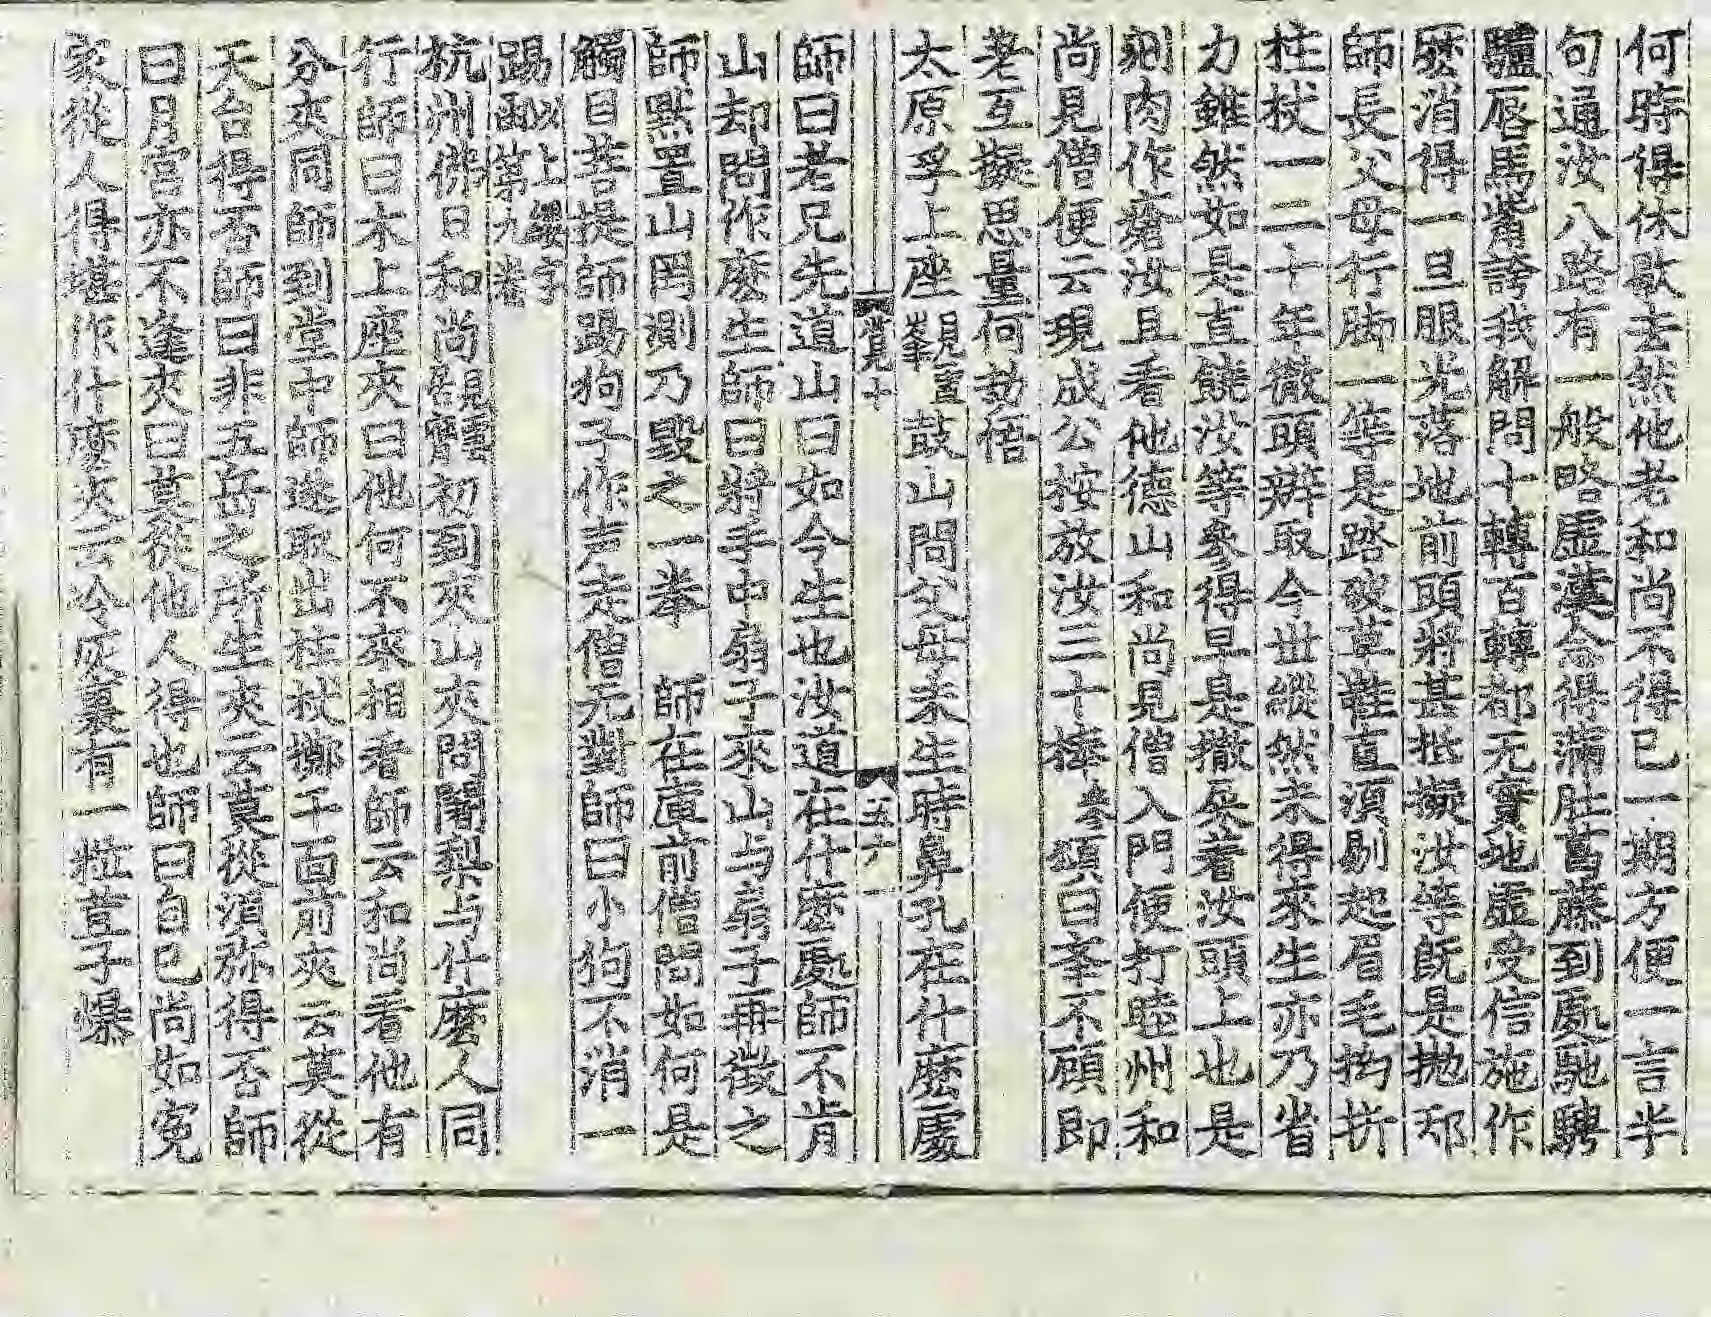 何時得休歇去然他老和尚不得已一期方便一言半
句通汝八路有一般略虛漢食得滿肚葛藤到處馳騁
驢唇馬觜誇我解問十轉百轉都无實地虛受信施作
麽消得一旦眼光落地前頭將甚抵擬汝等旣是抛却
師長父母行脚一等是踏破草鞋直湏剔起眉毛抝折
柱杖一二十年徹頭辦取今世縱然未得來生亦乃省
力雖然如是直饒汝等參得早是撒屎着汝頭上也是
剜肉作瘡汝且看他德山和尚見僧入門便打睦州和
尚見僧便云現成公按放汝三十棒 參 頌曰 不顧即
差互擬思量何劫悟
太原孚上座 鼓山問父母未生時鼻孔在什麽處
五十一
師曰老兄先道山曰如今生也汝道在什麽處師不肯
山却問作麽生師曰將手中扇子來山与扇子再徵之
師默置山罔測乃毆之一拳 師在庫前僧問如何是
觸目菩提師踢狗子作声走僧无對師曰小狗不消一
踢 以上 字函第九卷
杭州佛日和尚 初到夾山夾問闍梨与什麽人同
行師曰木上座夾曰他何不來相看師云和尚看他有
分夾同師到堂中師遂取出柱杖擲于面前夾云莫從
天台得否師曰非五岳之所生夾云莫從湏弥得否師
曰月宮亦不逢夾曰莫從他人得也師曰自己尚如寃
家從人得堪作什麽夾云冷灰裏有一粒荳子爆